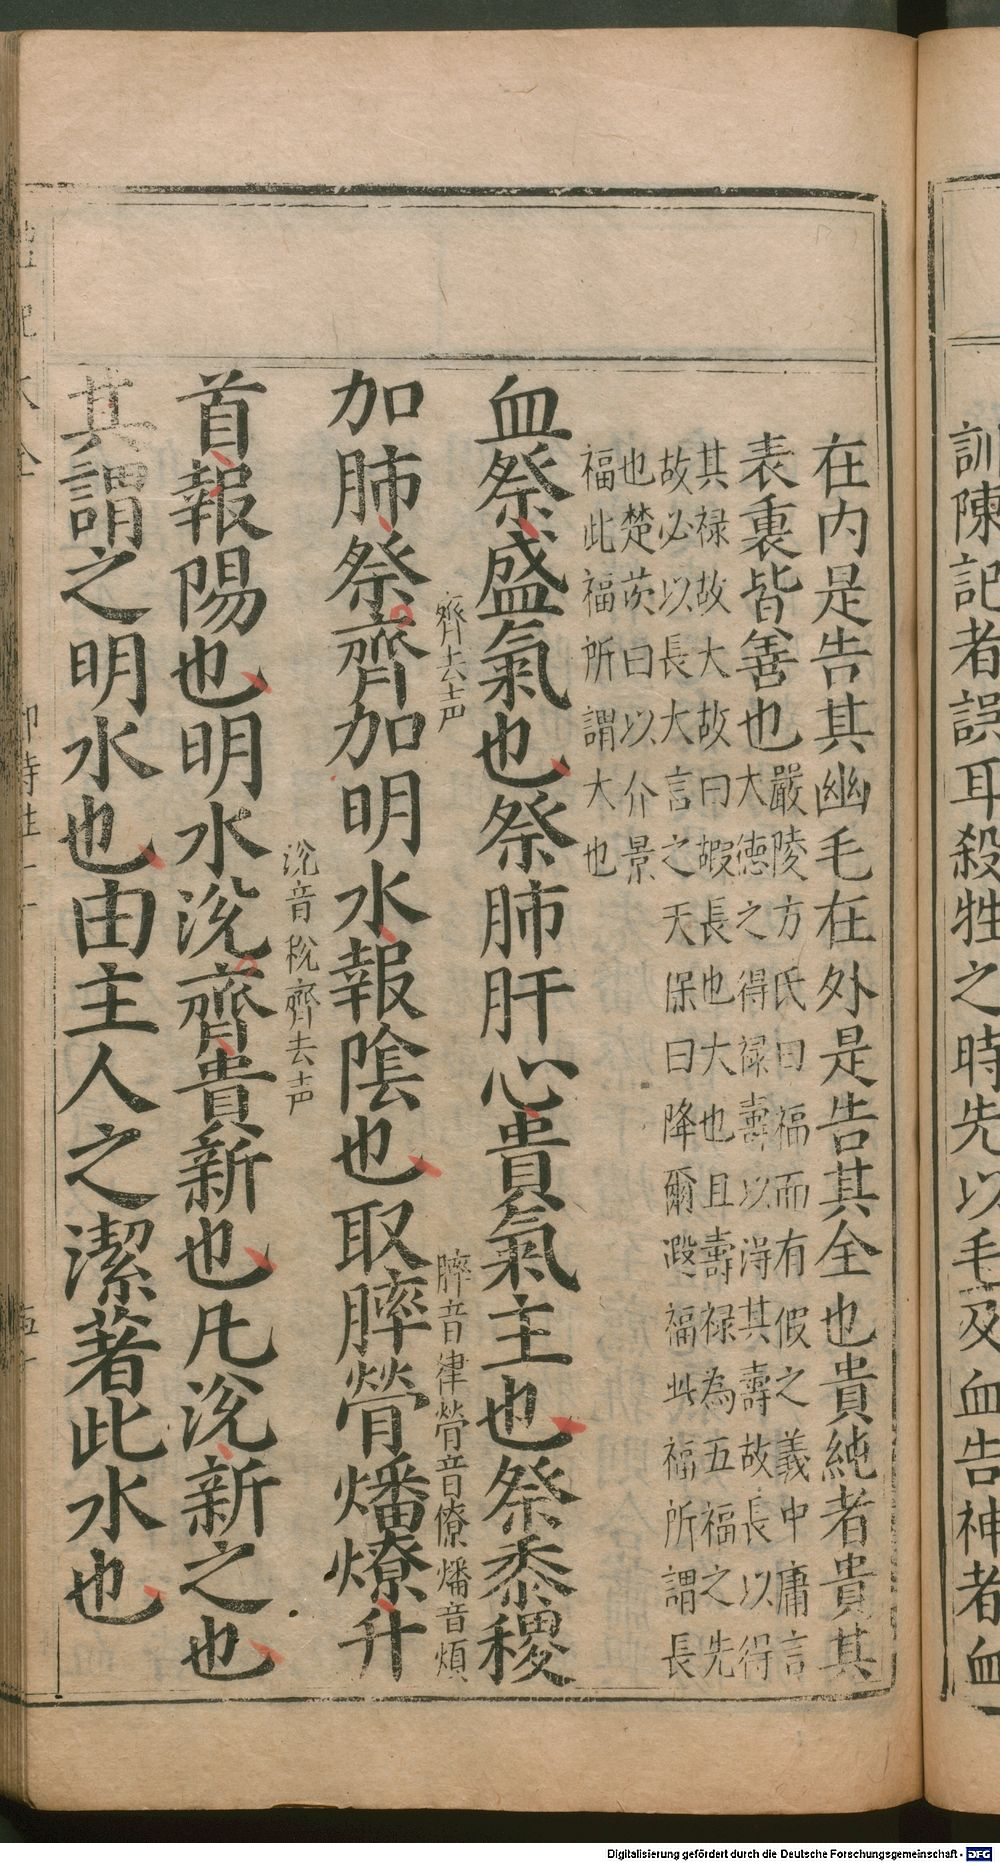 訓陳記者誤耳殺牲之時先以毛及血告神者血
在内是告其幽毛在外是告其全也貴純者貴其
表裏皆善也
嚴陵方氏曰福而有假之義中庸言
大德之得禄壽以得其壽故長以得
其禄故大故曰嘏長也大也且壽禄為五福之先
故必以長大言之天保曰降爾遐福此福所謂長
也楚茨曰以介景
福此福所謂大也
血祭盛氣也祭肺肝心貴氣主也祭黍稷
齊去声
膟音律膋音僚燔音煩
加肺祭齊加明水報陰也取膟膋燔燎升
涗音税齊去声
首報陽也明水涗齊貴新也凡涗新之也
其謂之明水也由主人之潔著此水也
Digitalisierung gefördert durch die Deutsche Forschungsgemeinschaft - DFG